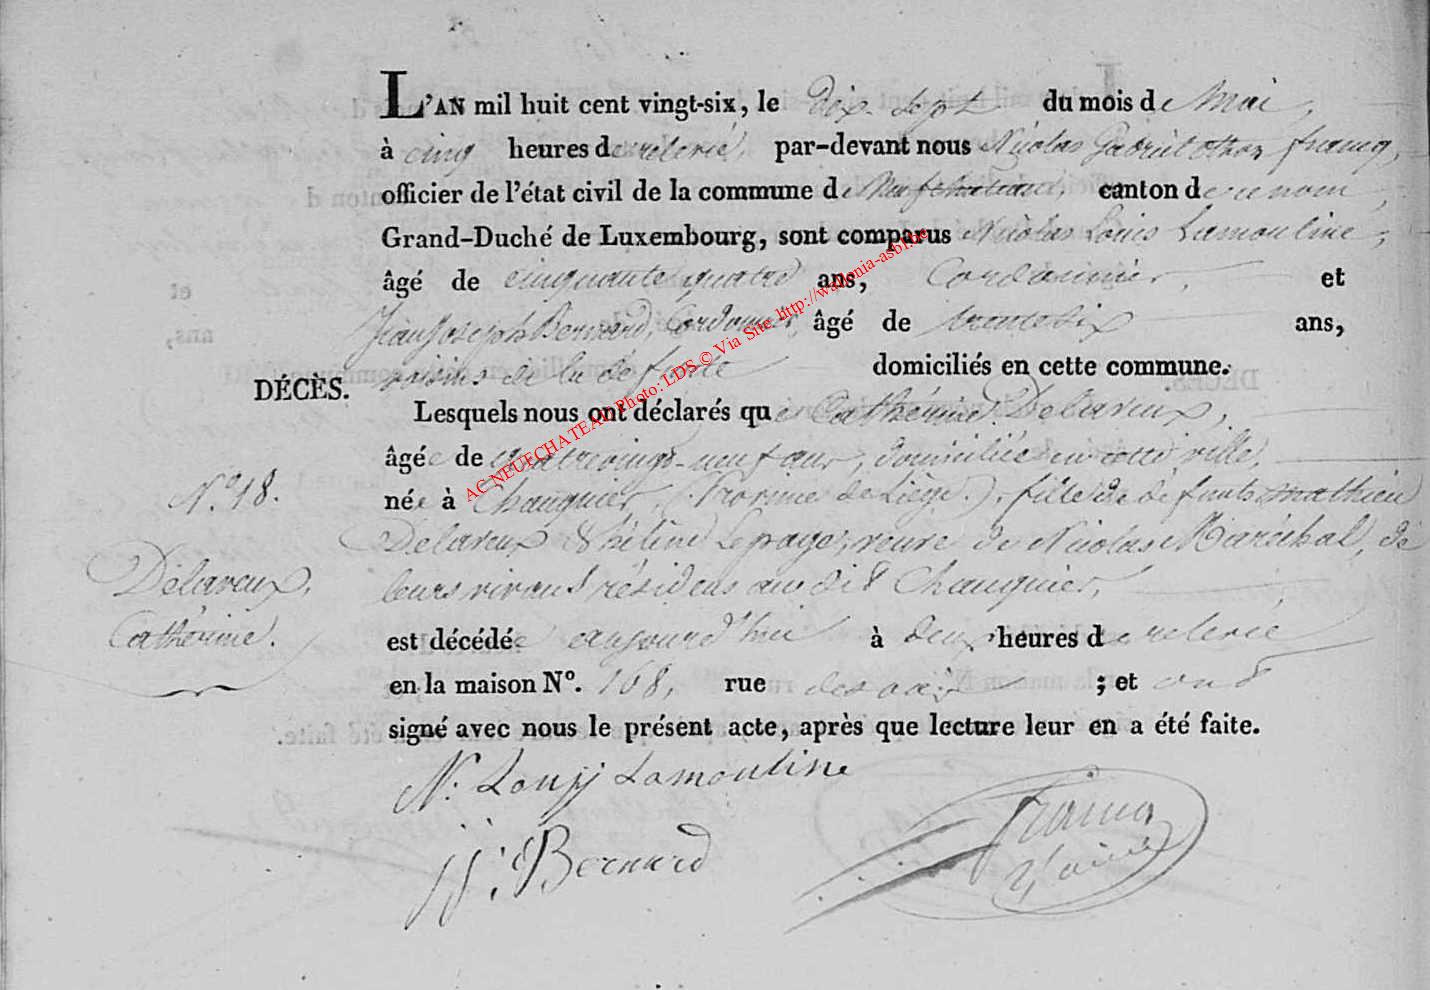 L'AN mil huit cent vingt-six, le dix Sept du mois de Mai,
à cinq heures de relevée, par-devant nous Nicolas Gabriel Francq,
officier de l'état civil de la commune de Neufchateau, canton de ce nom,
Grand-Duché de Luxembourg, sont comparus Nicolas Louis Lamouline,
âgé de cinquante quatre ans, Cordonnier, et
Jean Joseph Bernard, Cordonnier, âgé de trente six ans,
voisins de la défunte domiciliés en cette commune.
DÉCÈS.
Lesquels nous ont déclarés que Cathérine Delaveux,
âgée de quatrevingt-neuf ans, domiciliée en cette ville,
N.º 18.
née à Chauquier, (Province de Liège), fille de défunts Mathieu
Delaveux & hélène Lepage, veuve de Nicolas Maréchal, de
Délaveux,
Cathérine.
leurs vivant résidens au dit Chauquier,
est décédée aujourd'hui à deux heures de relevée
en la maison Nº. 168, rue ; et ont
signé avec nous le présent acte, après que lecture leur en a été faite.
N: Louis Lamouline
JJ. Bernard
Francq
AC NEUFCHATEAU Photo: LDS © Via Site http://wallonia-asbl.be